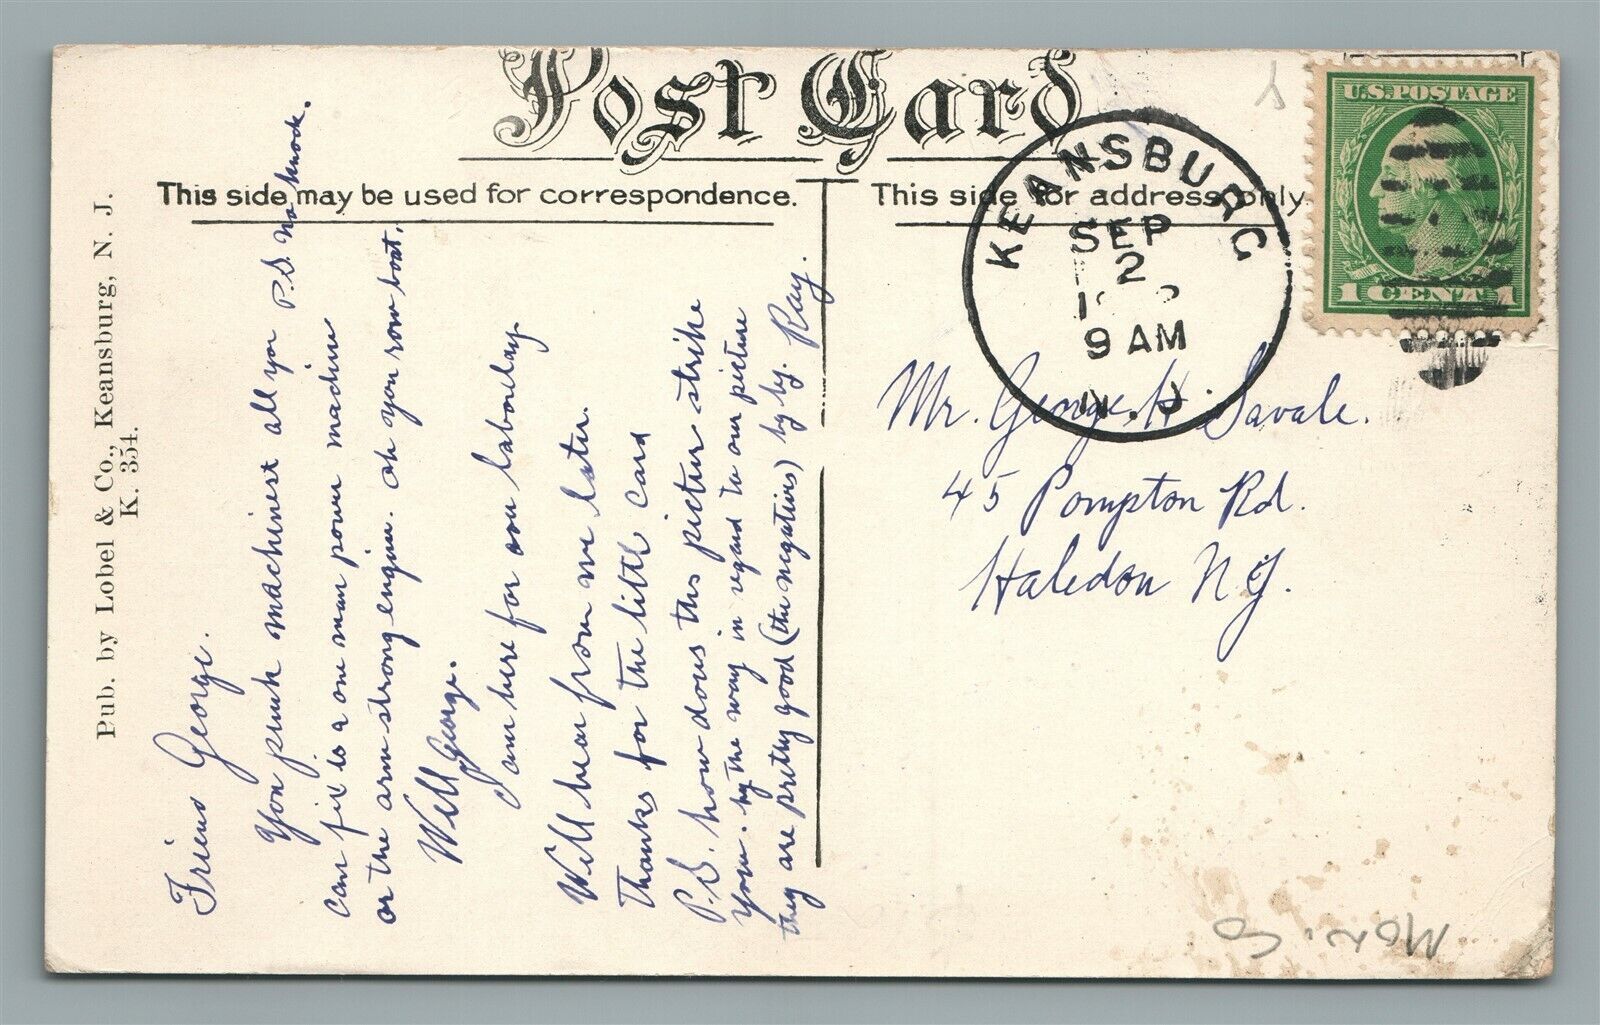 Post Card
This side may be used for correspondence.
This side for address only.
Pub. by Lobel & Co., Keansburg, N. J.
K. 354.
KEANSBURG
SEP
2
9 AM
N.J.
U.S. POSTAGE
1 CENT 1
Friend George.
You punk machinest all you
can fix is a one man power machine
or the arm strong engine. oh you row boat.
Well George.
I am here for over laborday
Will hear from me later.
Thanks for the little card
P.S. how dous this picture strike
you. by the way in regard to our picture
they are pretty good (the negatives) by by. Ray.
P.S. no knock.
Mr. George H. Savale.
45 Pompton Rd.
Haledon N.J.
Mon. Co